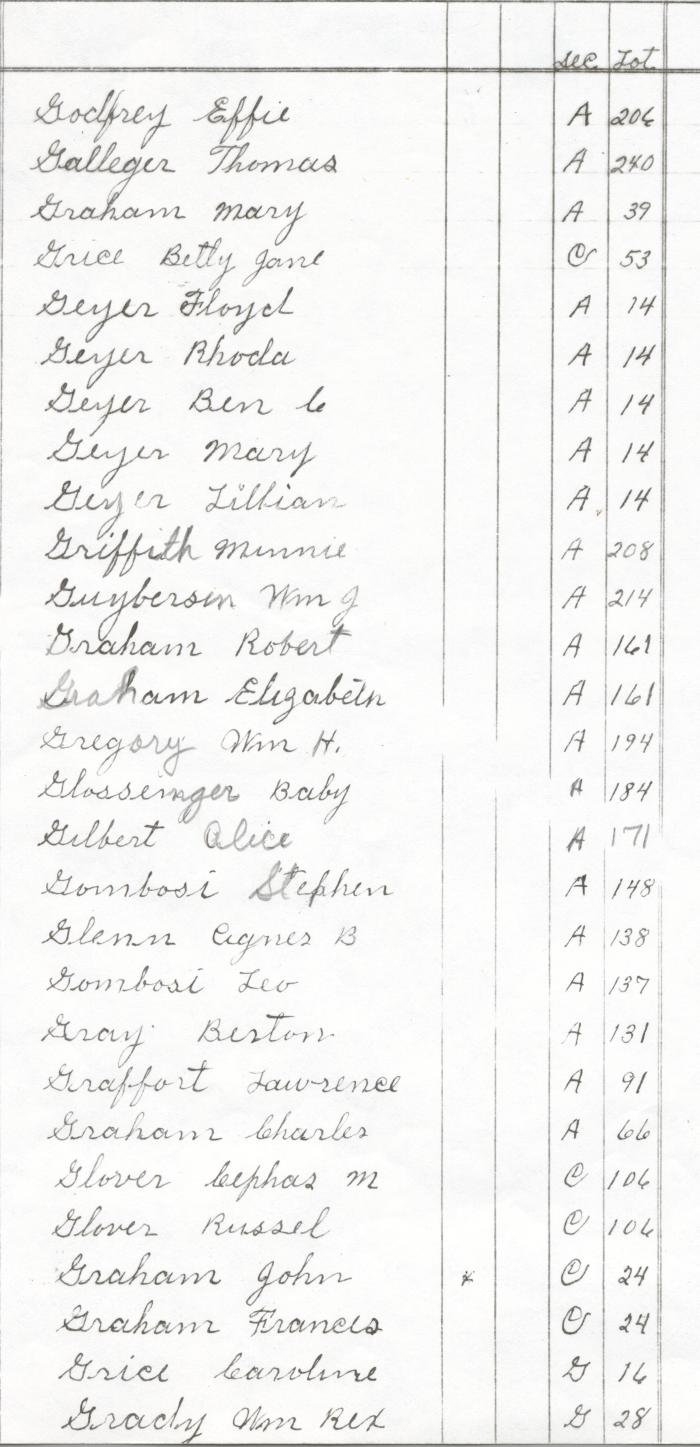 Sec. Lot
Godfrey Effie A 206
Galleger Thomas A 240
Graham Mary A 39
Grice Betty Jane C 53
Geyer Floyd A 14
Geyer Rhoda A 14
Geyer Ben C A 14
Geyer Mary A 14
Geyer Lillian A 14
Griffith Minnie A 208
Guyberson Wm J A 214
Graham Robert A 161
Graham Elizabeth A 161
Gregory Wm H. A 194
Glossenger Baby A 184
Gilbert Alice A 171
Gombosi Stephen A 148
Glenn Agnes B A 138
Gombosi Leo A 137
Gray Berton A 131
Graffort Lawrence A 91
Graham Charles A 66
Glover Cephas M C 106
Glover Russel C 106
Graham John * C 24
Graham Francis C 24
Grice Caroline G 16
Grady Wm Rex G 28